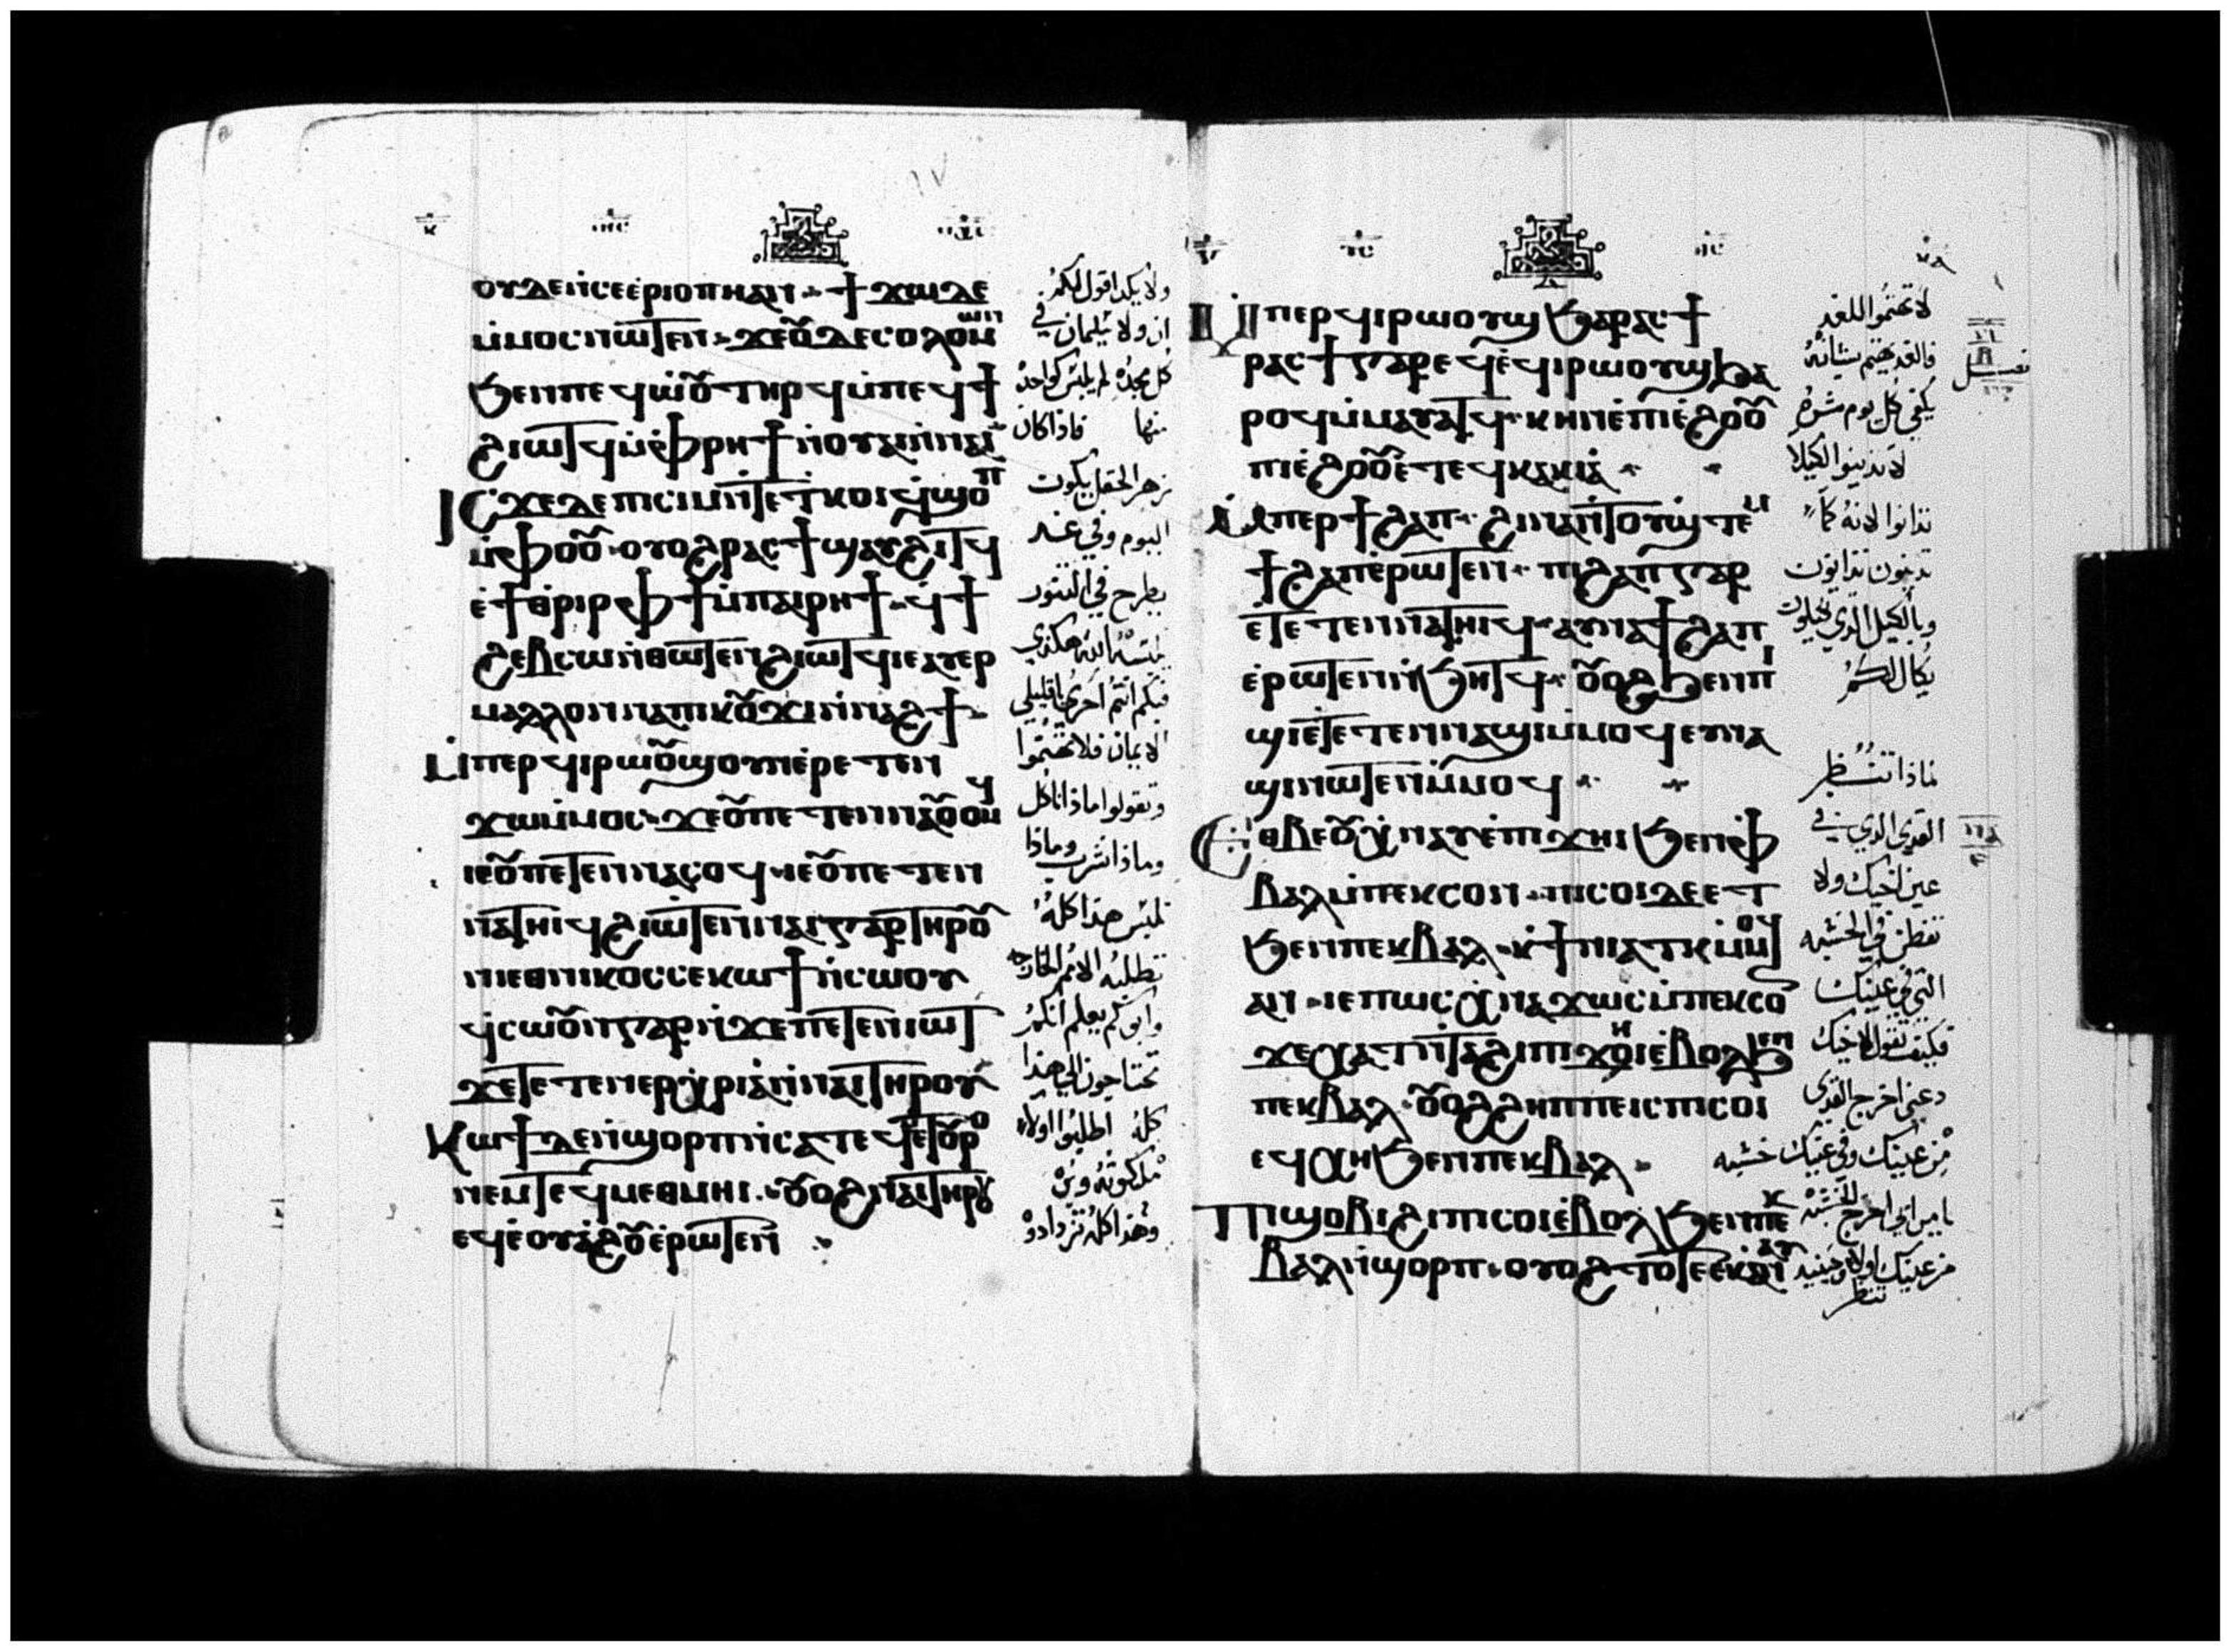 ⲟⲩⲇⲉ ⲛ̇ⲥⲉⲉⲣⲓⲟⲡⲏ ⲁⲛ ϯϫⲱ ⲇⲉ
ⲙ̇ⲙⲟⲥ ⲛⲱⲧⲉⲛ ϫⲉ ⲟⲩⲇⲉ ⲥⲟⲗⲟⲙⲱⲛ
ϧⲉⲛ ⲡⲉϥⲱ̇ⲟⲩ ⲧⲏⲣϥ ⲙ̇ⲡⲉϥϯ
ϩⲓⲱⲧϥ ⲙ̇ⲫⲣⲏϯ ⲛ̇ⲟⲩⲁⲓ ⲛ̇ⲛⲁⲓ
ⲓⲥϫⲉ ⲇⲉ ⲡⲓⲥⲓⲙ ⲛ̇ⲧⲉ ⲧⲕⲟⲓ ϥ̇ϣⲟⲡ
ⲙ̇ⲫⲟⲟⲩ ⲟⲩⲟϩ ⲣⲁⲥϯ ϣⲁⲩϩⲓⲧϥ
ⲉ̇ϯⲑⲣⲓⲣ ⲫϯ ⲙ̇ⲡⲁⲓⲣⲏϯ ϥ̇ϯ
ϩⲉⲃⲥⲱ ⲛ̇ⲑⲱⲧⲉⲛ ϩⲓⲱⲧϥ ⲓⲉ ⲁⲩⲉⲣ
ⲙⲁⲗⲗⲟⲛ ⲛⲁ ⲡⲓⲕⲟⲩϫⲓ ⲛ̇ⲛⲁϩϯ
ⲙ̇ⲡⲉⲣϥⲓⲣⲱⲟⲩϣ ⲟⲩⲛ ⲉ̇ⲣⲉⲧⲉⲛ
ϫⲱ ⲙ̇ⲙⲟⲥ ϫⲉ ⲟⲩ ⲡⲉⲧⲉⲛⲛⲁⲟⲩⲟⲙϥ
ⲓⲉ ⲟⲩ ⲡⲉⲧⲉⲛⲛⲁⲥⲟϥ ⲓⲉ ⲟⲩ ⲡⲉⲧⲉⲛ
ⲛⲁⲧⲏⲓϥ ϩⲓⲱⲧⲉⲛ ⲛⲁⲓ ⲅⲁⲣ ⲧⲏⲣⲟⲩ
ⲛⲓⲉⲑⲛⲓⲕⲟⲥ ⲥⲉⲕⲱϯ ⲛ̇ⲥⲱⲟⲩ
ϥ̇ⲥⲱⲟⲩⲛ ⲅⲁⲣ ⲛ̇ϫⲉ ⲡⲉⲧⲉⲛⲓⲱⲧ
ϫⲉ ⲧⲉⲧⲉⲛⲉⲣⲭⲣⲓⲁ ⲛ̇ⲛⲁⲓ ⲧⲏⲣⲟⲩ
ⲕⲱϯ ⲇⲉ ⲛ̇ϣⲟⲣⲡ ⲛ̇ⲥⲁ ⲧⲉϥⲙⲉⲧⲟⲩⲣⲟ
ⲛⲉⲙ ⲧⲉϥⲙⲉⲑⲙⲏⲓ ⲟⲩⲟϩ ⲛⲁⲓ ⲧⲏⲣⲟⲩ
ⲉϥⲉ̇ⲟⲩⲁϩⲟⲩ ⲉ̇ⲣⲱⲧⲉⲛ
ولا يكد اقول لكم
ان ولا سليمان في
كل مجده لم يلبس كواحد
منها فاذا كان
زهر الحقل يكون
اليوم وفي غد
يطرح في التنور
يلبسه الله هكذي
فبكم انتم احري يا قليلي
الايمان فلا تهتموا
وتقولوا ماذا ناكل
وماذا نشرب وماذا
نلبس هذا كله
تطلبه الامم الخارجه
وابوكم يعلم انكم
تحتاجون الي هذا
كله اطلبوا اولا
ملكوته وبره
وهذا كله تزدادوه
ⲙ̇ⲡⲉⲣϥⲓⲣⲱⲟⲩϣ ϧⲁ ⲣⲁⲥϯ
ⲣⲁⲥϯ ⲅⲁⲣ ⲉϥⲉ̇ϥⲓⲣⲱⲟⲩϣ ϧⲁ
ⲣⲟϥ ⲙ̇ⲙⲁⲩⲁⲧϥ ⲕⲏⲛ ⲉ̇ⲡⲓⲉ̇ϩⲟⲟⲩ
ⲡⲓⲉ̇ϩⲟⲟⲩ ⲉ̇ⲧⲉϥⲕⲁⲕⲓⲁ
ⲙ̇ⲡⲉⲣϯϩⲁⲡ ϩⲓⲛⲁ ⲛ̇ⲧⲟⲩϣⲧⲉⲙ
ϯϩⲁⲡ ⲉ̇ⲣⲱⲧⲉⲛ ⲡⲓϩⲁⲡ ⲅⲁⲣ
ⲉ̇ⲧⲉⲧⲉⲛⲛⲁⲧⲏⲓϥ ⲁⲩⲛⲁϯϩⲁⲡ
ⲉ̇ⲣⲱⲧⲉⲛ ⲛ̇ϧⲏⲧϥ ⲟⲩⲟϩ ϧⲉⲛ ⲡⲓ
ϣⲓ ⲉ̇ⲧⲉⲧⲉⲛⲛⲁϣⲓ ⲙ̇ⲙⲟϥ ⲉⲩⲛⲁ
ϣⲓ ⲛⲱⲧⲉⲛ ⲙ̇ⲙⲟϥ
ⲉⲑⲃⲉ ⲟⲩ ⲭ̇ⲛⲁⲩ ⲉ̇ⲡⲓϫⲏⲓ ϧⲉⲛ ⲫ
ⲃⲁⲗ ⲙ̇ⲡⲉⲕⲥⲟⲛ ⲡⲓⲥⲟⲓ ⲇⲉ ⲉⲧ
ϧⲉⲛ ⲡⲉⲕⲃⲁⲗ ⲕ̇ϯⲛⲓⲁⲧⲕ ⲙ̇ⲙⲟϥ
ⲁⲛ ⲓⲉ ⲡⲱⲥ ⲭ̇ⲛⲁϫⲱⲥ ⲙ̇ⲡⲉⲕⲥⲟⲛ
ϫⲉ ⲭⲁⲧ ⲛ̇ⲧⲁϩⲓ ⲡⲓϫⲏⲓ ⲉ̇ⲃⲟⲗ ϧⲉⲛ
ⲡⲉⲕⲃⲁⲗ ⲟⲩⲟϩ ϩⲏⲡⲡⲉ ⲓⲥ ⲡⲓⲥⲟⲓ
ⲉϥⲭⲏ ϧⲉⲛ ⲡⲉⲕⲃⲁⲗ
ⲡⲓϣⲟⲃⲓ ϩⲓ ⲡⲓⲥⲟⲓ ⲉ̇ⲃⲟⲗ ϧⲉⲛ ⲡⲉⲕ
ⲃⲁⲗ ⲛ̇ϣⲟⲣⲡ ⲟⲩⲟϩ ⲧⲟⲧⲉ ⲉⲕⲛⲁⲛⲁⲩ
لا تهتموا للغد
فالغد يهتم بشانه
يكفي كل يوم شره
لا تدينوا لكيلا
تدانوا لانه كما
تدينون تدانون
وبالكيل الذي تكيلون
يكال لكم
لماذا تنظر
القذي الذي في
عين اخيك ولا
تفطن في الخشبه
التي في عينك
فكيف تقول لاخيك
دعني اخرج القذي
من عينك وفي عينك خشبه
يا مرائي اخرج الخشبه
من عينك اولا وحينيد
تنظر